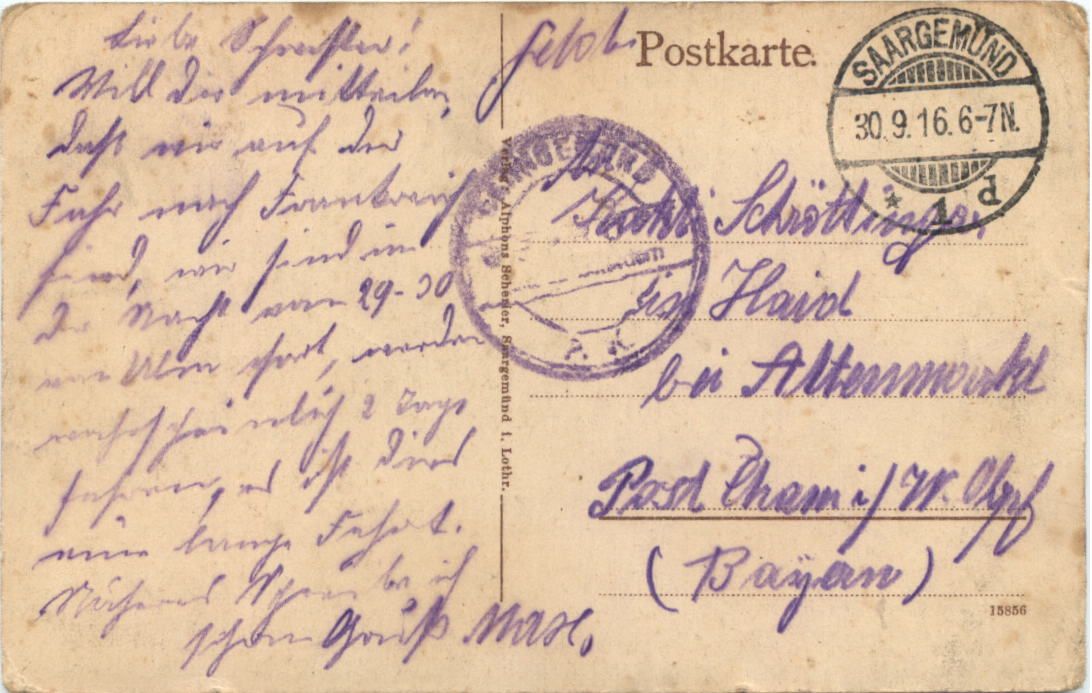 Liebe Schwester!
Will dir mitteilen,
daß wir auf der
Fahr nach Frankreich
sind, wir sind in
der Nacht vom 29-30
von Ulm fort, werden
wahrscheinlich 2 Tage
fahren, es ist dies
eine lange Fahrt.
Näheres Schreibe ich
schon Gruß Max.
Feldp. Postkarte.
SAARGEMÜND
30.9.16.6-7N.
* 1 d
An
Schröttinger
in Haid
bei Altenmarkt
Post Cham i/W. Opf
(Bayern)
15856
Verlag Alphons Scherier, Saargemünd i. Lothr.